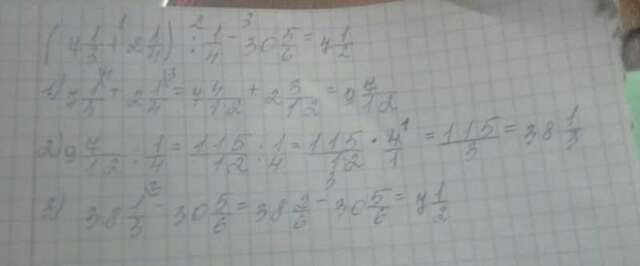 (7 1/3 + 2 1/4) : 1/4 - 30 5/6 = 7 1/2
1) 7 1/3 + 2 1/4 = 7 4/12 + 2 3/12 = 9 7/12
2) 9 7/12 : 1/4 = 115/12 : 1/4 = 115/12 · 4/1 = 115/3 = 38 1/3
3) 38 1/3 - 30 5/6 = 38 2/6 - 30 5/6 = 7 1/2